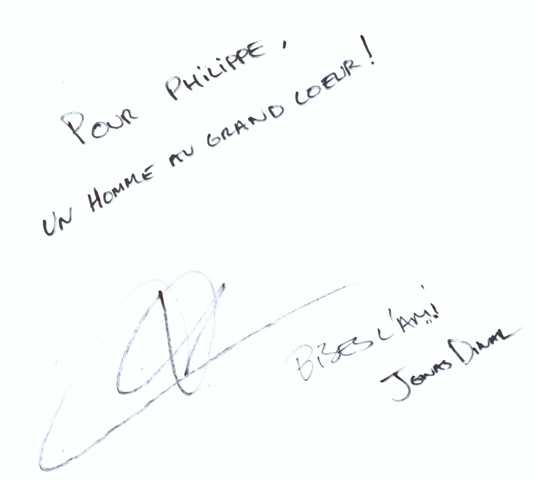 POUR PHILIPPE,
UN HOMME AU GRAND COEUR!
BISES L'AMI!
JONAS DINAL